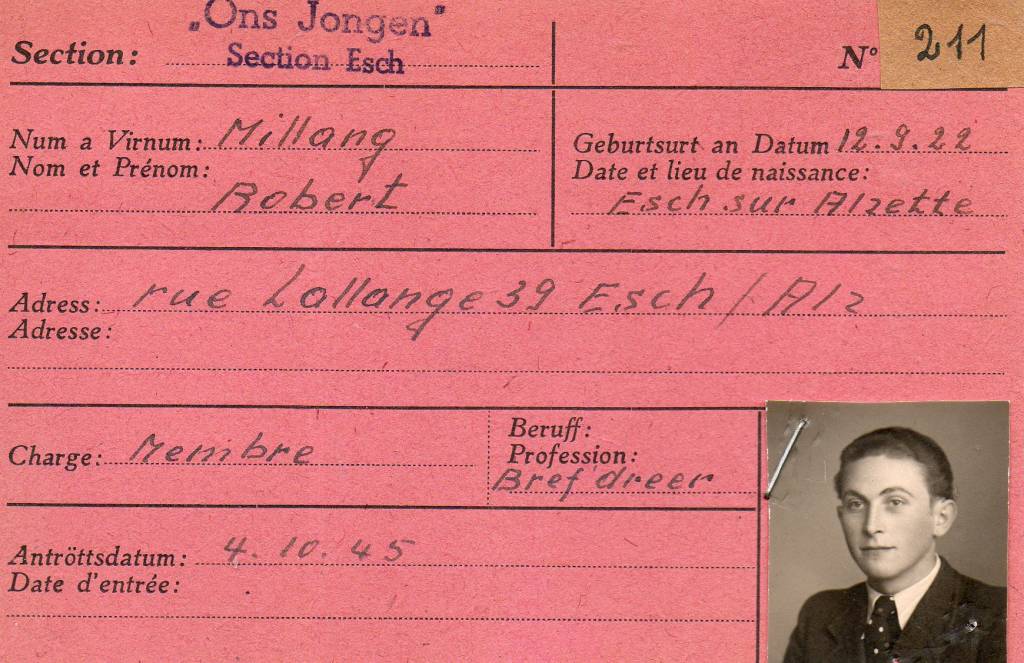 „Ons Jongen"
Section: Section Esch
N° 211
Num a Virnum: Millang
Nom et Prénom:
Robert
Geburtsurt an Datum 12.9.22
Date et lieu de naissance:
Esch sur Alzette
Adress: rue Lallange 39 Esch / Alz
Adresse:
Charge: Membre
Beruff:
Profession:
Bref'dreer
Antröttsdatum: 4.10.45
Date d'entrée: